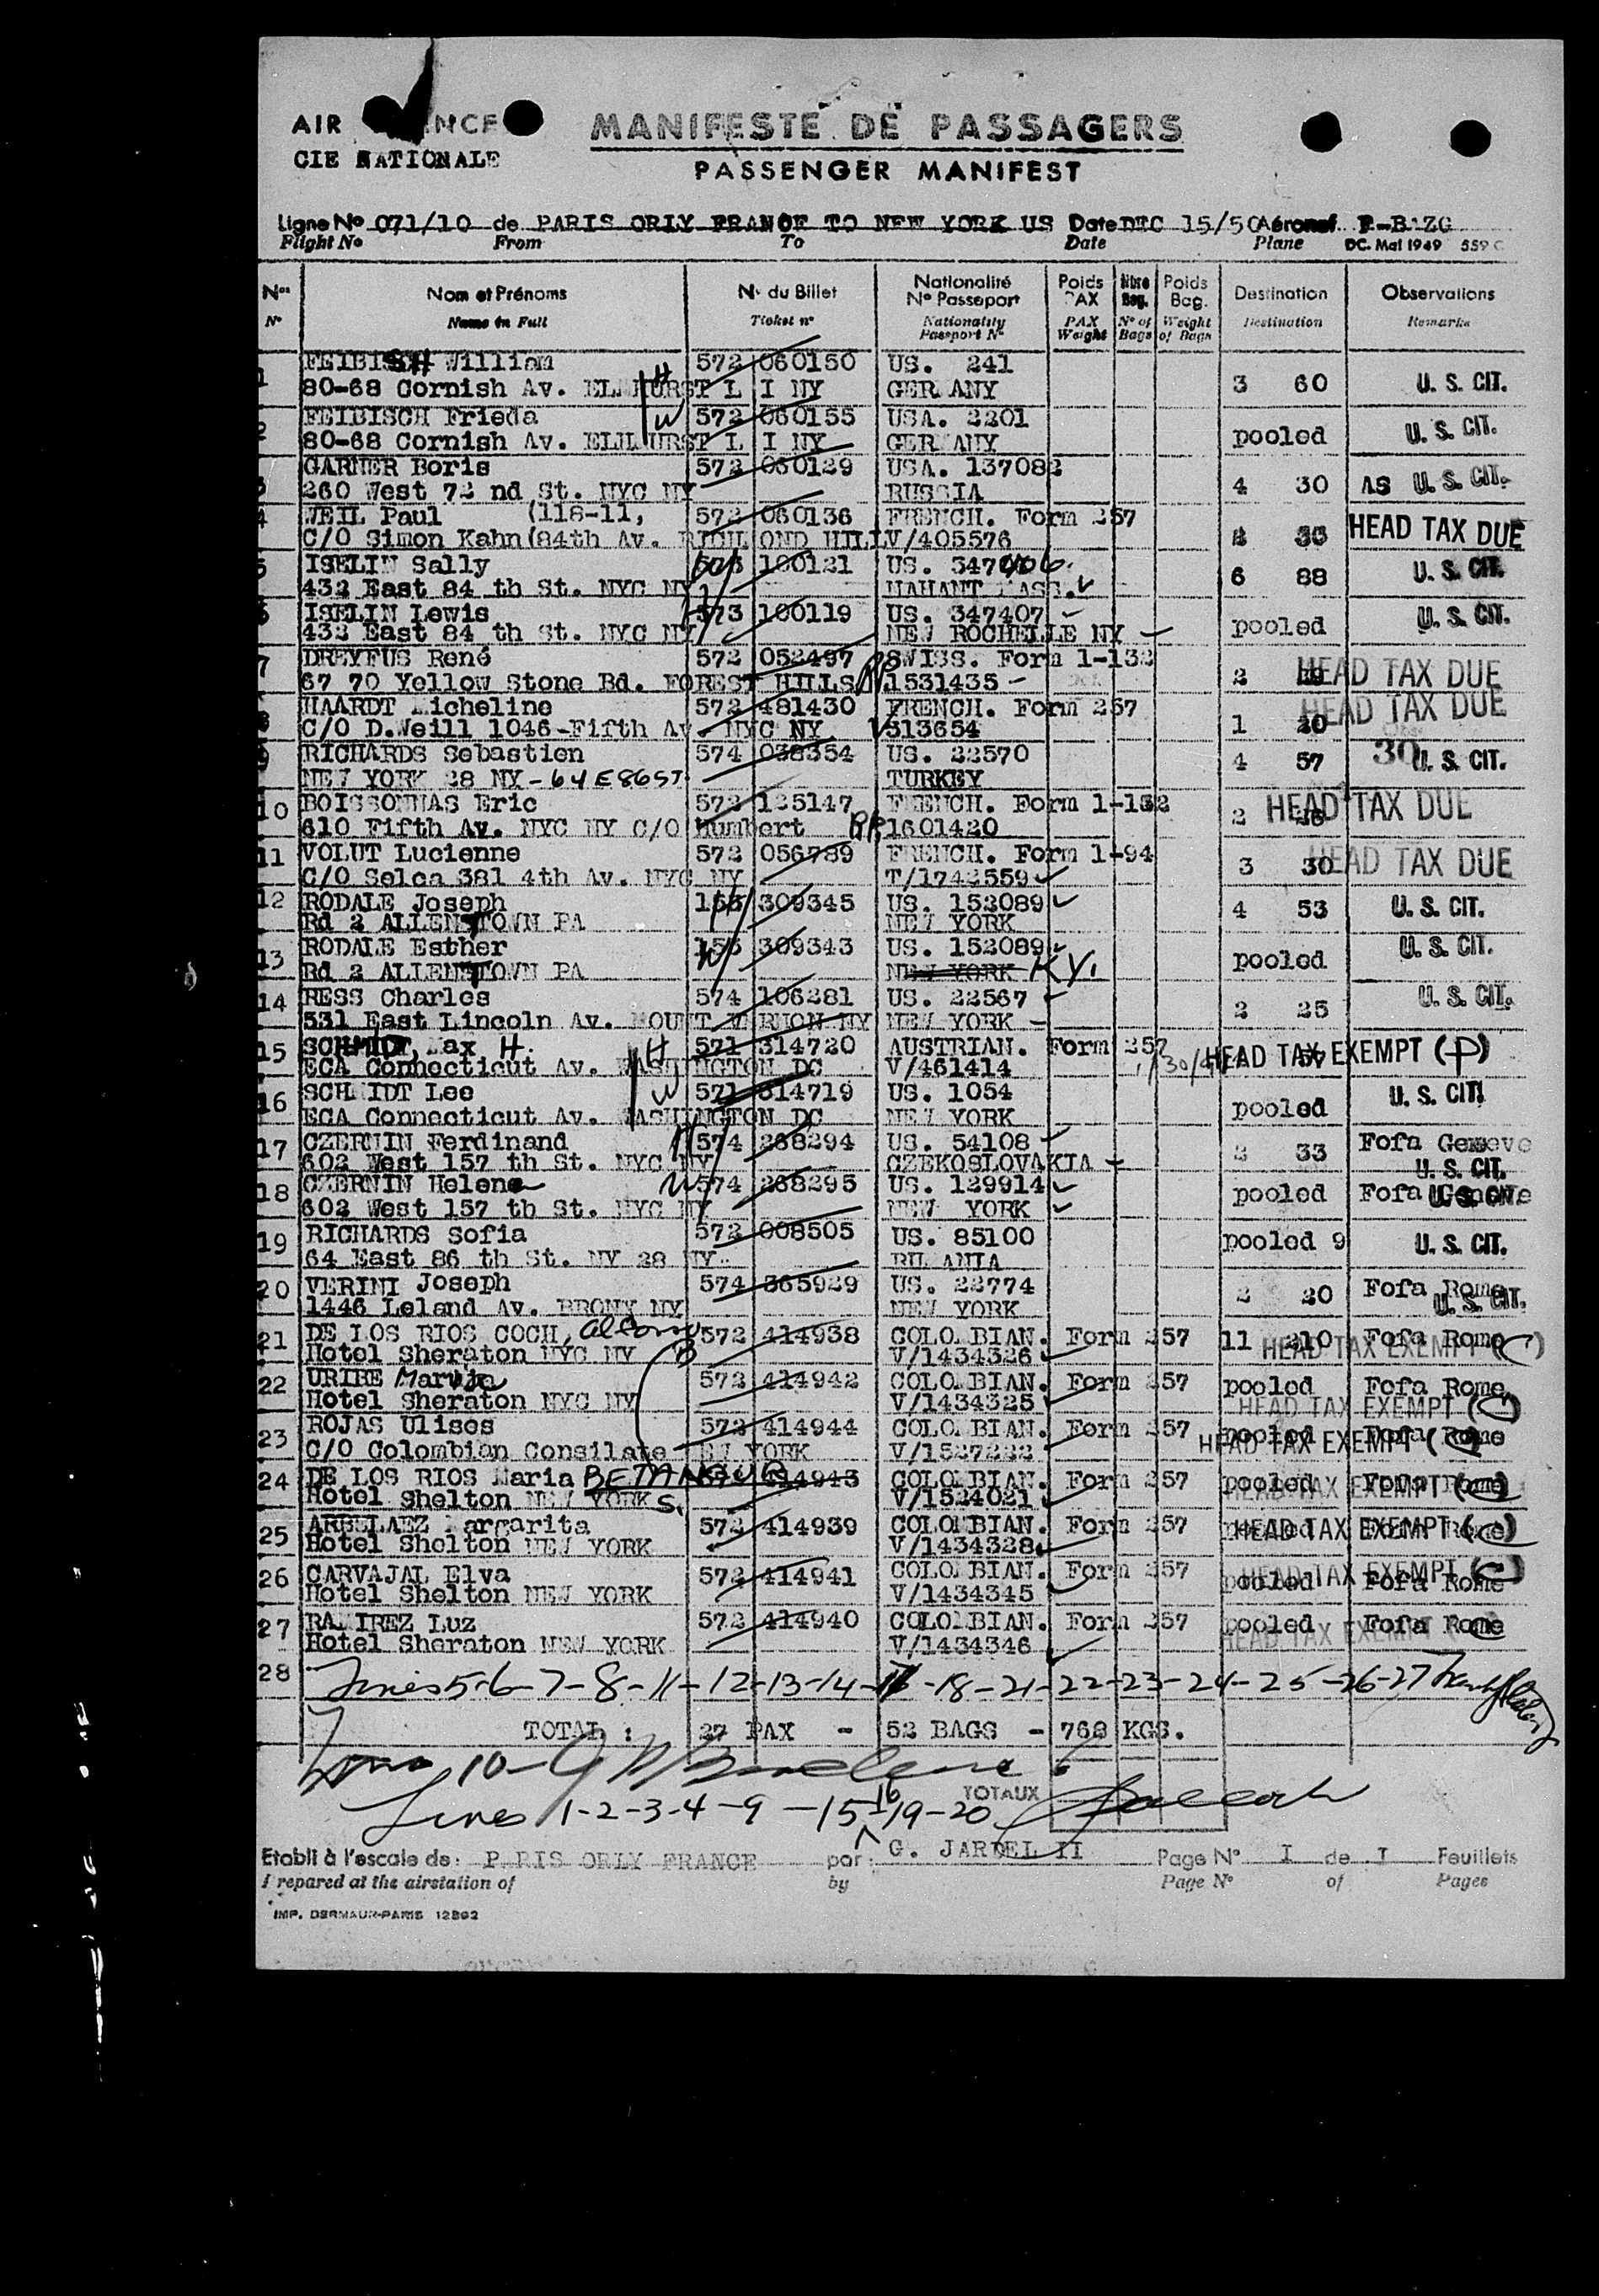 AIR FRANCE
CIE NATIONALE
MANIFESTE DE PASSAGERS
PASSENGER MANIFEST
Ligne No 071/10 de PARIS ORLY FRANCE TO NEW YORK US Date DEC 15/50 Aéronef
Flight No From To Date Plane DC. Mai 1949 559 C
Nos Nom et Prénoms No du Billet Nationalité No Passeport Poids PAX Nbre Bag. Poids Bag. Destination Observations
No Name in Full Ticket no Nationality Passport No PAX Weight No of Bags Weight of Bags Destination Remarks
1 FEIBISH William 572 060150 US. 241 3 60 U. S. CIT.
80-68 Cornish Av. ELMHURST L I NY H GERMANY
2 FEIBISCH Frieda W 572 060155 USA. 2201 pooled U. S. CIT.
80-68 Cornish Av. ELMHURST L I NY GERMANY
3 GARNER Boris 572 060129 USA. 137082 4 30 AS U. S. CIT.
260 West 72 nd St. NYC NY RUSSIA
4 WEIL Paul (118-11, 572 060136 FRENCH. Form 257 HEAD TAX DUE
C/O Simon Kahn (84th Av. RICHMOND HILL V/405576
5 ISELIN Sally 100121 US. 347406. 6 88 U. S. CIT.
432 East 84 th St. NYC NY NAHANT MASS.
6 ISELIN Lewis 573 100119 US. 347407 pooled U. S. CIT.
432 East 84 th St. NYC NY NEW ROCHELLE NY
7 DREYFUS René 572 052497 SWISS. Form 1-132 2 HEAD TAX DUE
67 70 Yellow Stone Bd. FOREST HILLS RP 1531435
8 HAARDT Micheline 572 481430 FRENCH. Form 257 1 20 HEAD TAX DUE
C/O D.Weill 1046-Fifth Av NYC NY V 313654
9 RICHARDS Sebastien 574 038354 US. 22570 4 57 30 U. S. CIT.
NEW YORK 28 NY - 64 E 86 ST TURKEY
10 BOISSONNAS Eric 572 125147 FRENCH. Form 1-132 2 HEAD TAX DUE
610 Fifth Av. NYC NY C/O Humbert RP 1601420
11 VOLUT Lucienne 572 056789 FRENCH. Form 1-94 3 30 HEAD TAX DUE
C/O Selca 381 4th Av. NYC NY T/1742559
12 RODALE Joseph 155 309345 US. 152089 4 53 U. S. CIT.
Rd 2 ALLENSTOWN PA NEW YORK
13 RODALE Esther 155 309343 US. 152089 pooled U. S. CIT.
Rd 2 ALLENSTOWN PA NEW YORK KY.
14 RESS Charles 574 106281 US. 22567 2 25 U. S. CIT.
531 East Lincoln Av. MOUNT VERNON NY NEW YORK
15 SCHMIDT, Max H. H 571 314720 AUSTRIAN. Form 257 HEAD TAX EXEMPT (P)
ECA Connecticut Av. WASHINGTON DC V/461414
16 SCHMIDT Lee W 571 314719 US. 1054 pooled U. S. CIT.
ECA Connecticut Av. WASHINGTON DC NEW YORK
17 CZERNIN Ferdinand H 574 268294 US. 54108 2 33 Fofa Geneve
602 West 157 th St. NYC NY CZEKOSLOVAKIA U. S. CIT.
18 CZERNIN Helene W 574 268295 US. 129914 pooled Fofa Geneve U. S. CIT.
602 West 157 th St. NYC NY NEW YORK
19 RICHARDS Sofia 572 008505 US. 85100 pooled 9 U. S. CIT.
64 East 86 th St. NY 28 NY. RUMANIA
20 VERINI Joseph 574 365929 US. 22774 2 20 Fofa Rome
1446 Leland Av. BRONX NY NEW YORK U. S. CIT.
21 DE LOS RIOS COCH, Alfonso 572 414938 COLOMBIAN. Form 257 11 210 Fofa Rome
Hotel Sheraton NYC NY B V/1434326 HEAD TAX EXEMPT (C)
22 URIBE Maruja 572 414942 COLOMBIAN. Form 257 pooled Fofa Rome
Hotel Sheraton NYC NY V/1434325 HEAD TAX EXEMPT (C)
23 ROJAS Ulises 572 414944 COLOMBIAN. Form 257 pooled Fofa Rome
C/O Colombian Consilate NEW YORK V/1527222 HEAD TAX EXEMPT (C)
24 DE LOS RIOS Maria BETANCUR 414943 COLOMBIAN. Form 257 pooled Fofa Rome
Hotel Shelton NEW YORK S. V/1524021 HEAD TAX EXEMPT (C)
25 ARBELAEZ Margarita 572 414939 COLOMBIAN. Form 257 pooled Fofa Rome
Hotel Shelton NEW YORK V/1434328 HEAD TAX EXEMPT (C)
26 CARVAJAL Elva 572 414941 COLOMBIAN. Form 257 pooled Fofa Rome
Hotel Shelton NEW YORK V/1434345 HEAD TAX EXEMPT (C)
27 RAMIREZ Luz 572 414940 COLOMBIAN. Form 257 pooled Fofa Rome
Hotel Sheraton NEW YORK V/1434346 HEAD TAX EXEMPT
28 Lines 5-6-7-8-11-12-13-14-17-18-21-22-23-24-25-26-27
TOTAL : 27 PAX - 52 BAGS - 768 KGS.
Line 10-
TOTAUX
Lines 1-2-3-4-9-15-16-19-20
Etabli à l'escale de: PARIS ORLY FRANCE par: G. JARDEL II Page No I de I Feuillets
Prepared at the airstation of by Page No of Pages
IMP. DERMAUR-PARIS 12892